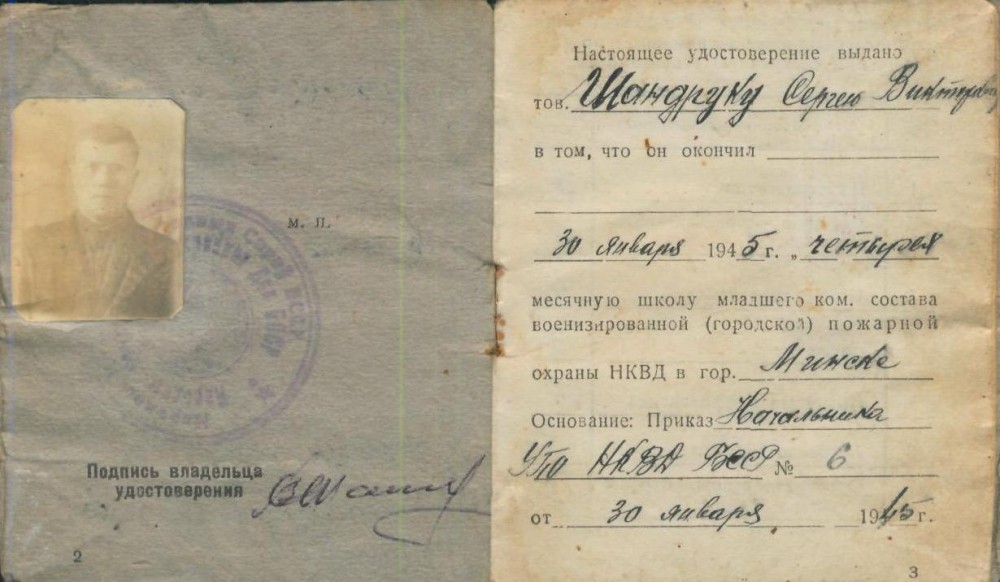 М. П.
Подпись владельца
удостоверения
2
Настоящее удостоверение выдано
тов. Шандруку Сергею Викторовичу
в том, что он окончил
30 января 1945 г. „четырех
месячную школу младшего ком. состава
военизированной (городской) пожарной
охраны НКВД в гор. Минске
Основание: Приказ Начальника
УПО НКВД БССР № 6
от 30 января 1945 г.
3